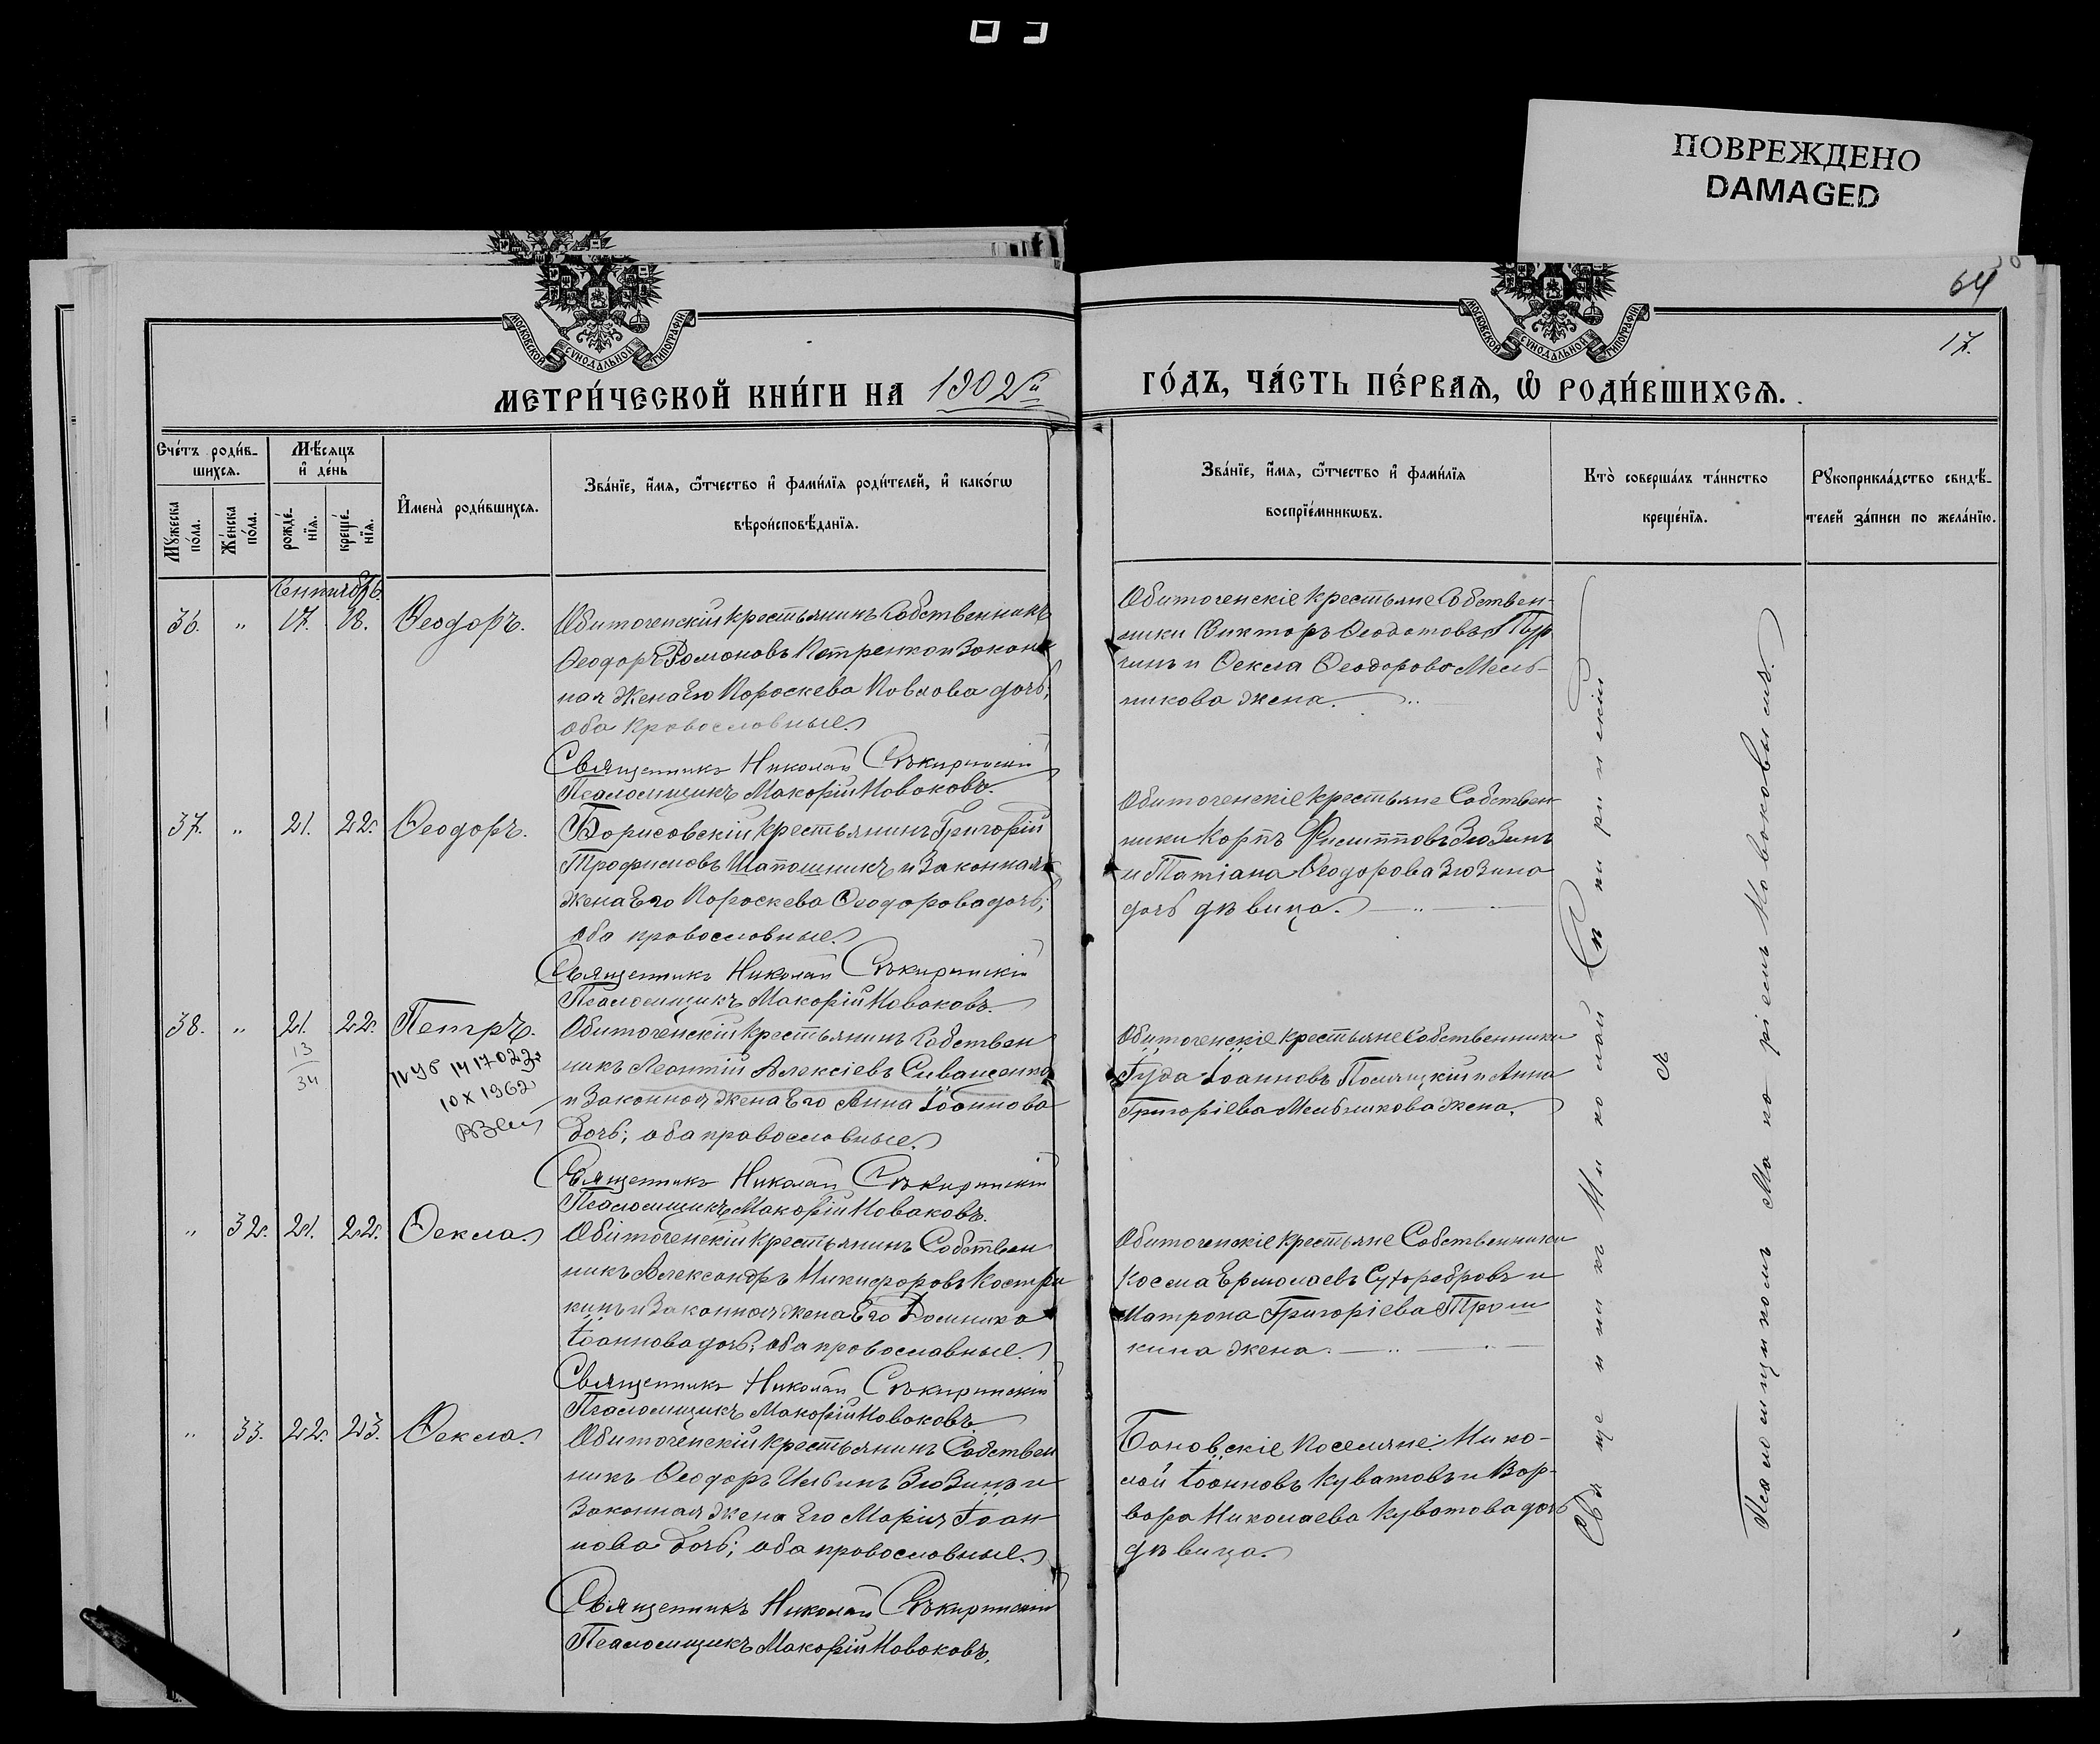 ПОВРЕЖДЕНО
DAMAGED
МОСКОВСКОЙ СѴНОДАЛЬНОЙ ТИПОГРАФІИ
МОСКОВСКОЙ СѴНОДАЛЬНОЙ ТИПОГРАФІИ
64
17.
МЕТРИ́ЧЕСКОЙ КНИ́ГИ НА 1902й
ГО́ДЪ, ЧА́СТЬ ПЕ́РВАѦ, Ѡ҆ РОДИ́ВШИХСѦ.
Сче́тъ роди́в-
шихсѧ.
Мѣ́сѧцъ
и҆ де́нь
Мꙋ́жеска по́ла.
Же́нска по́ла.
рожде́-
нїѧ.
креще́-
нїѧ.
И҆мена̀ роди́вшихсѧ.
Зва́нїе, и҆́мѧ, ѻ҆́тчество и҆ фами́лїѧ роди́телей, и҆ како́гѡ
вѣроисповѣ́данїѧ.
Зва́нїе, и҆́мѧ, ѻ҆́тчество и҆ фами́лїѧ
воспрїе́мникѡвъ.
Кто̀ соверша́лъ та́инство
креще́нїѧ.
Рꙋкоприкла́дство свидѣ́-
телей за́писи по жела́нїю.
Сентябрь
36. " 17. 18. Ѳеодоръ.
Обиточенскій крестьянинъ Собственникъ
Ѳеодоръ Романовъ Петренко и Закон
ная Жена Его Параскева Павлова дочь;
оба православные.
Священникъ Николай Сѣкиринскій
Псаломщикъ Макарій Новаковъ.
Обиточенскіе крестьяне Собствен-
ники Викторъ Ѳеодотовъ
и Ѳекла Ѳеодорова Мель-
никова жена.
37. " 21. 22. Ѳеодоръ.
Борисовскій крестьянинъ Григорій
Трофимовъ Шапошникъ и Законная
жена Его Параскева Ѳеодорова дочь;
оба православные.
Священникъ Николай Сѣкиринскій
Псаломщикъ Макарій Новаковъ.
Обиточенскіе крестьяне Собствен-
ники Карпъ Филипповъ Зюзинъ
и Татіана Ѳеодорова Зюзина
дочь дѣвица.
38. " 21. 22. Петръ.
13
34
10 X 1962
Обиточенскій крестьянинъ Собствен
никъ Леонтій Алексіевъ Сиващенко
и Законная Жена Его Анна Іоаннова
дочь; оба православные.
Священникъ Николай Сѣкиринскій
Псаломщикъ Макарій Новаковъ.
Обиточенскіе крестьяне Собственники
Іуда Іоанновъ и Анна
Григоріева Мельникова жена.
" 32. 21. 22. Ѳекла.
Обиточенскій крестьянинъ Собствен
никъ Александръ Никифоровъ Костри
кинъ и Законная жена Его Домника
Іоаннова дочь; оба православные.
Священникъ Николай Сѣкиринскій
Псаломщикъ Макарій Новаковъ.
Обиточенскіе крестьяне Собственники
Косма Ермолаевъ Сухоребровъ и
Матрона Григоріева Трош
кина жена.
" 33. 22. 23. Ѳекла.
Обиточенскій крестьянинъ Собствен
никъ Ѳеодоръ Ильинъ Зюзинъ и
Законная Жена Его Марія Іоан
нова дочь; оба православные.
Священникъ Николай Сѣкиринскій
Псаломщикъ Макарій Новаковъ.
Бановскіе Поселяне: Нико-
лай Іоанновъ Куватовъ и Вар-
вара Николаева Куватова дочь
дѣвица.
Священникъ Николай Сѣкиринскій
съ
Псаломщикомъ Макаріемъ Новаковымъ.